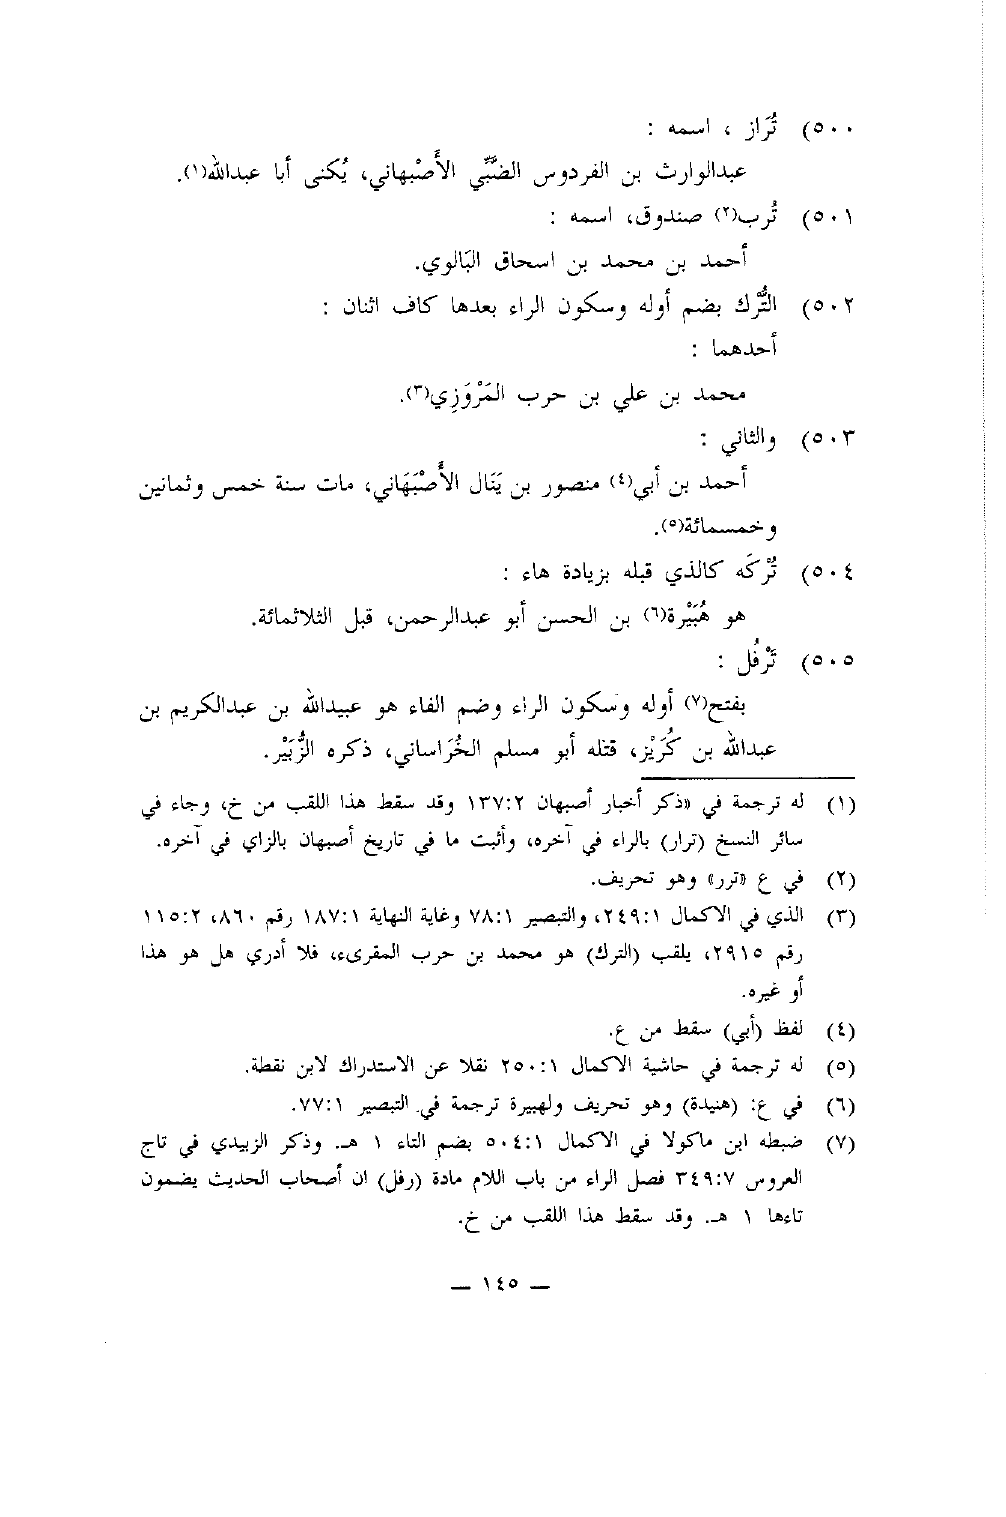 ٥٠٠) تُرَاز ، اسمه :
عبدالوارث بن الفردوس الضَّبِّي الأَصْبهاني، يُكنى أبا عبدالله(١).
٥٠١) تُرب(٢) صندوق، اسمه :
أحمد بن محمد بن اسحاق البَالوي.
٥٠٢) التُّرك بضم أوله وسكون الراء بعدها كاف اثنان :
أحدهما :
محمد بن علي بن حرب المَرْوَزِي(٣).
٥٠٣) والثاني :
أحمد بن أبي(٤) منصور بن يَنَال الأَصْبَهَاني، مات سنة خمس وثمانين
وخمسمائة(٥).
٥٠٤) تُرْكَه كالذي قبله بزيادة هاء :
هو هُبَيْرة(٦) بن الحسن أبو عبدالرحمن، قبل الثلاثمائة.
٥٠٥) تَرْفُل :
بفتح(٧) أوله وسكون الراء وضم الفاء هو عبيدالله بن عبدالكريم بن
عبدالله بن كُرَيْز، قتله أبو مسلم الخُرَاساني، ذكره الزُّبَيْر.
(١) له ترجمة في «ذكر أخبار أصبهان ١٣٧:٢ وقد سقط هذا اللقب من خ، وجاء في
سائر النسخ (ترار) بالراء في آخره، وأثبت ما في تاريخ أصبهان بالزاي في آخره.
(٢) في ع «ترر» وهو تحريف.
(٣) الذي في الاكمال ٢٤٩:١، والتبصير ٧٨:١ وغاية النهاية ١٨٧:١ رقم ٨٦٠، ١١٥:٢
رقم ٢٩١٥، يلقب (الترك) هو محمد بن حرب المقرىء، فلا أدري هل هو هذا
أو غيره.
(٤) لفظ (أبي) سقط من ع.
(٥) له ترجمة في حاشية الاكمال ٢٥٠:١ نقلا عن الاستدراك لابن نقطة.
(٦) في ع: (هنيدة) وهو تحريف ولهبيرة ترجمة في التبصير ٧٧:١.
(٧) ضبطه ابن ماكولا في الاكمال ٥٠٤:١ بضم التاء ١ هـ. وذكر الزبيدي في تاج
العروس ٣٤٩:٧ فصل الراء من باب اللام مادة (رفل) ان أصحاب الحديث يضمون
تاءها ١ هـ. وقد سقط هذا اللقب من خ.
— ١٤٥ —